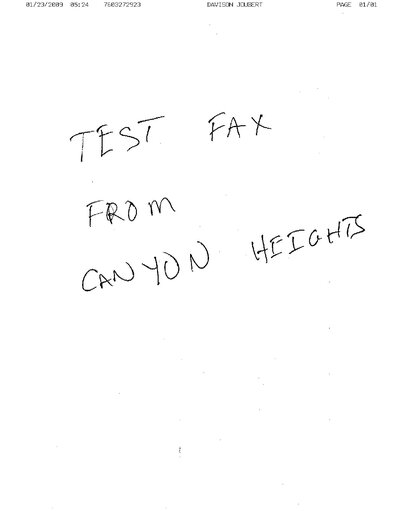 01/23/2009 05:24 7603272923 DAVISON JOUBERT PAGE 01/01
TEST FAX
FROM
CANYON HEIGHTS